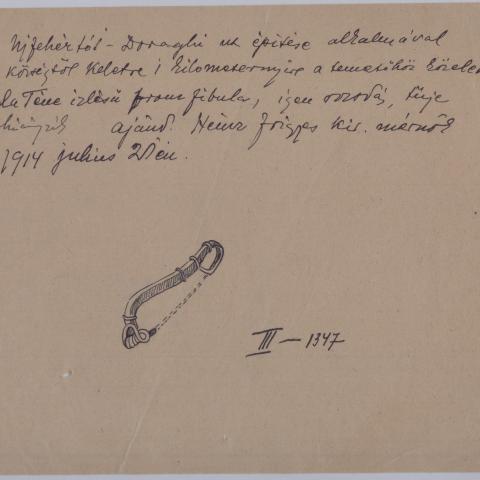 Ujfehértó - Doroghi ut építése alkalmával
községtől keletre 1 kilometernyire a temetőhöz közelen
La Téne izlésű bronz fibula, igen rozsdás, tűje
hiányzik ajánd. kir. mérnök
1914 julius
III - 1347